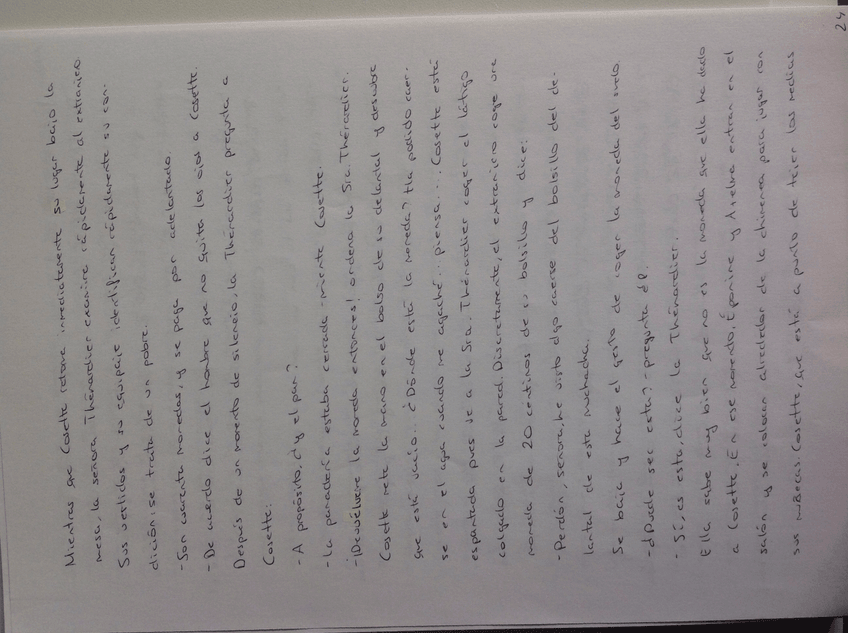 Mientras que Cosette retome inmediatamente su lugar bajo la
mesa, la señora Thénardier examine rápidamente al extranjero
Sus vestidos y su equipaje identifican rápidamente su con-
dición: se trata de un pobre.
- Son cuarenta monedas, y se paga por adelantado.
- De acuerdo dice el hombre que no quita los ojos a Cosette.
Después de un momento de silencio, la Thénardier pregunta a
Cosette:
- A propósito, ¿y el pan?
- La panadería estaba cerrada miente Cosette.
- ¡Devuélveme la moneda entonces! ordena la Sra. Thénardier.
Cosette mete la mano en el bolso de su delantal y descubre
que está vacío... ¿Dónde está la moneda? Ha podido caer-
se en el agua cuando me agaché... piensa... Cosette está
espantada pues ve a la Sra. Thénardier coger el látigo
colgado en la pared. Discretamente, el extranjero coge una
moneda de 20 centimos de su bolsillo y dice:
- Perdón, señora, he visto algo caerse del bolsillo del de-
lantal de esta muchacha.
Se baja y hace el gesto de coger la moneda del suelo
- ¿Puede ser esta? pregunta él.
- Sí, es esta, dice la Thénardier.
Ella sabe muy bien que no es la moneda que ella ha dado
a Cosette. En ese momento, Éponine y Azelma entran en el
salón y se colocan alrededor de la chimenea para jugar con
sus muñecas. Cosette, que está a punto de tejer las medias
24